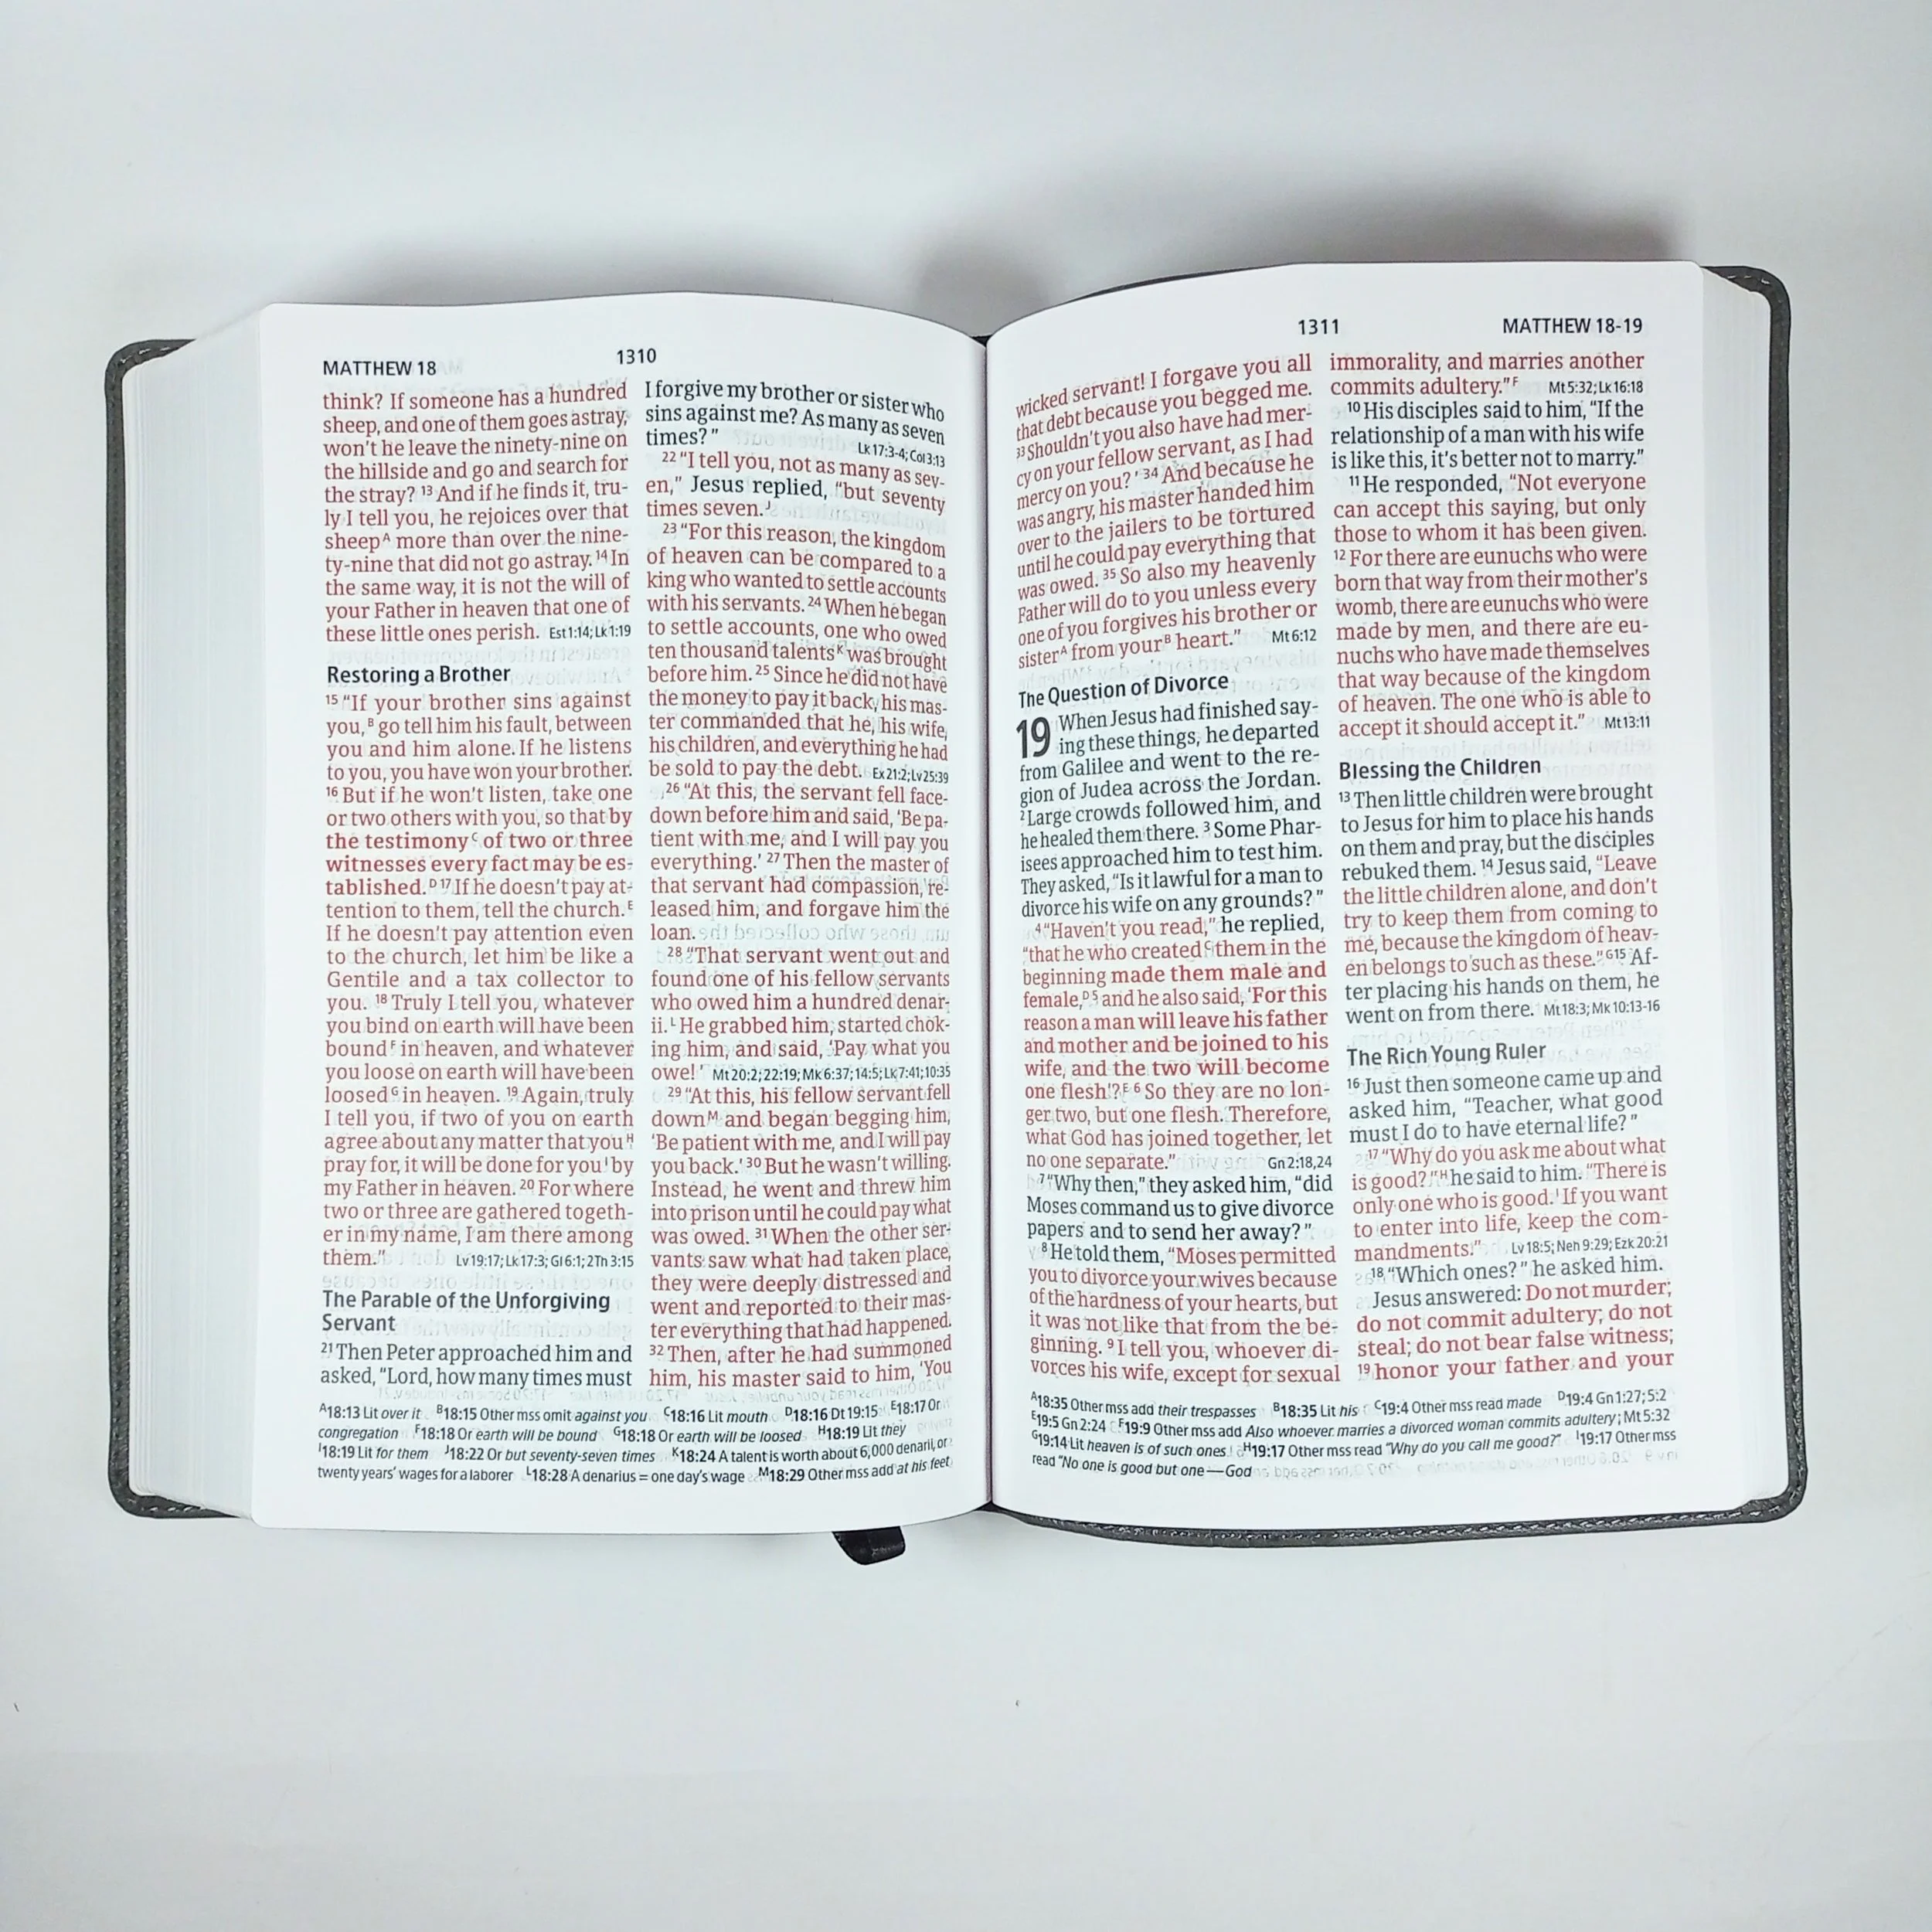 MATTHEW 18
1310
think? If someone has a hundred
sheep, and one of them goes astray,
won't he leave the ninety-nine on
the hillside and go and search for
the stray? 13 And if he finds it, tru-
ly I tell you, he rejoices over that
sheepA more than over the nine-
ty-nine that did not go astray. 14 In
the same way, it is not the will of
your Father in heaven that one of
these little ones perish. Est 1:14; Lk 1:19
Restoring a Brother
15 “If your brother sins against
you,B go tell him his fault, between
you and him alone. If he listens
to you, you have won your brother.
16 But if he won't listen, take one
or two others with you, so that by
the testimonyC of two or three
witnesses every fact may be es-
tablished.D 17 If he doesn't pay at-
tention to them, tell the church.E
If he doesn't pay attention even
to the church, let him be like a
Gentile and a tax collector to
you. 18 Truly I tell you, whatever
you bind on earth will have been
boundF in heaven, and whatever
you loose on earth will have been
loosedG in heaven. 19 Again, truly
I tell you, if two of you on earth
agree about any matter that youH
pray for, it will be done for youI by
my Father in heaven. 20 For where
two or three are gathered togeth-
er in my name, I am there among
them.” Lv 19:17; Lk 17:3; Gl 6:1; 2Th 3:15
The Parable of the Unforgiving
Servant
21 Then Peter approached him and
asked, “Lord, how many times must
I forgive my brother or sister who
sins against me? As many as seven
times?” Lk 17:3-4; Col 3:13
22 “I tell you, not as many as sev-
en,” Jesus replied, “but seventy
times seven.J
23 “For this reason, the kingdom
of heaven can be compared to a
king who wanted to settle accounts
with his servants. 24 When he began
to settle accounts, one who owed
ten thousand talentsK was brought
before him. 25 Since he did not have
the money to pay it back, his mas-
ter commanded that he, his wife,
his children, and everything he had
be sold to pay the debt. Ex 21:2; Lv 25:39
26 “At this, the servant fell face-
down before him and said, ‘Be pa-
tient with me, and I will pay you
everything.’ 27 Then the master of
that servant had compassion, re-
leased him, and forgave him the
loan.
28 “That servant went out and
found one of his fellow servants
who owed him a hundred denar-
ii.L He grabbed him, started chok-
ing him, and said, ‘Pay what you
owe!’ Mt 20:2; 22:19; Mk 6:37; 14:5; Lk 7:41; 10:35
29 “At this, his fellow servant fell
downM and began begging him,
‘Be patient with me, and I will pay
you back.’ 30 But he wasn't willing.
Instead, he went and threw him
into prison until he could pay what
was owed. 31 When the other ser-
vants saw what had taken place,
they were deeply distressed and
went and reported to their mas-
ter everything that had happened.
32 Then, after he had summoned
him, his master said to him, ‘You
A18:13 Lit over it B18:15 Other mss omit against you C18:16 Lit mouth D18:16 Dt 19:15 E18:17 Or
congregation F18:18 Or earth will be bound G18:18 Or earth will be loosed H18:19 Lit they
I18:19 Lit for them J18:22 Or but seventy-seven times K18:24 A talent is worth about 6,000 denarii, or
twenty years' wages for a laborer L18:28 A denarius = one day's wage M18:29 Other mss add at his feet
1311
MATTHEW 18-19
wicked servant! I forgave you all
that debt because you begged me.
33 Shouldn't you also have had mer-
cy on your fellow servant, as I had
mercy on you?’ 34 And because he
was angry, his master handed him
over to the jailers to be tortured
until he could pay everything that
was owed. 35 So also my heavenly
Father will do to you unless every
one of you forgives his brother or
sisterA from yourB heart.” Mt 6:12
The Question of Divorce
19 When Jesus had finished say-
ing these things, he departed
from Galilee and went to the re-
gion of Judea across the Jordan.
2 Large crowds followed him, and
he healed them there. 3 Some Phar-
isees approached him to test him.
They asked, “Is it lawful for a man to
divorce his wife on any grounds?”
4 “Haven't you read,” he replied,
“that he who createdC them in the
beginning made them male and
female,D 5 and he also said, ‘For this
reason a man will leave his father
and mother and be joined to his
wife, and the two will become
one flesh’?E 6 So they are no lon-
ger two, but one flesh. Therefore,
what God has joined together, let
no one separate.” Gn 2:18,24
7 “Why then,” they asked him, “did
Moses command us to give divorce
papers and to send her away?”
8 He told them, “Moses permitted
you to divorce your wives because
of the hardness of your hearts, but
it was not like that from the be-
ginning. 9 I tell you, whoever di-
vorces his wife, except for sexual
immorality, and marries another
commits adultery.”F Mt 5:32; Lk 16:18
10 His disciples said to him, “If the
relationship of a man with his wife
is like this, it's better not to marry.”
11 He responded, “Not everyone
can accept this saying, but only
those to whom it has been given.
12 For there are eunuchs who were
born that way from their mother's
womb, there are eunuchs who were
made by men, and there are eu-
nuchs who have made themselves
that way because of the kingdom
of heaven. The one who is able to
accept it should accept it.” Mt 13:11
Blessing the Children
13 Then little children were brought
to Jesus for him to place his hands
on them and pray, but the disciples
rebuked them. 14 Jesus said, “Leave
the little children alone, and don't
try to keep them from coming to
me, because the kingdom of heav-
en belongs to such as these.”G 15 Af-
ter placing his hands on them, he
went on from there. Mt 18:3; Mk 10:13-16
The Rich Young Ruler
16 Just then someone came up and
asked him, “Teacher, what good
must I do to have eternal life?”
17 “Why do you ask me about what
is good?”H he said to him. “There is
only one who is good.I If you want
to enter into life, keep the com-
mandments.” Lv 18:5; Neh 9:29; Ezk 20:21
18 “Which ones?” he asked him.
Jesus answered: Do not murder;
do not commit adultery; do not
steal; do not bear false witness;
19 honor your father and your
A18:35 Other mss add their trespasses B18:35 Lit his C19:4 Other mss read made D19:4 Gn 1:27; 5:2
E19:5 Gn 2:24 F19:9 Other mss add Also whoever marries a divorced woman commits adultery; Mt 5:32
G19:14 Lit heaven is of such ones H19:17 Other mss read “Why do you call me good?” I19:17 Other mss
read “No one is good but one—God